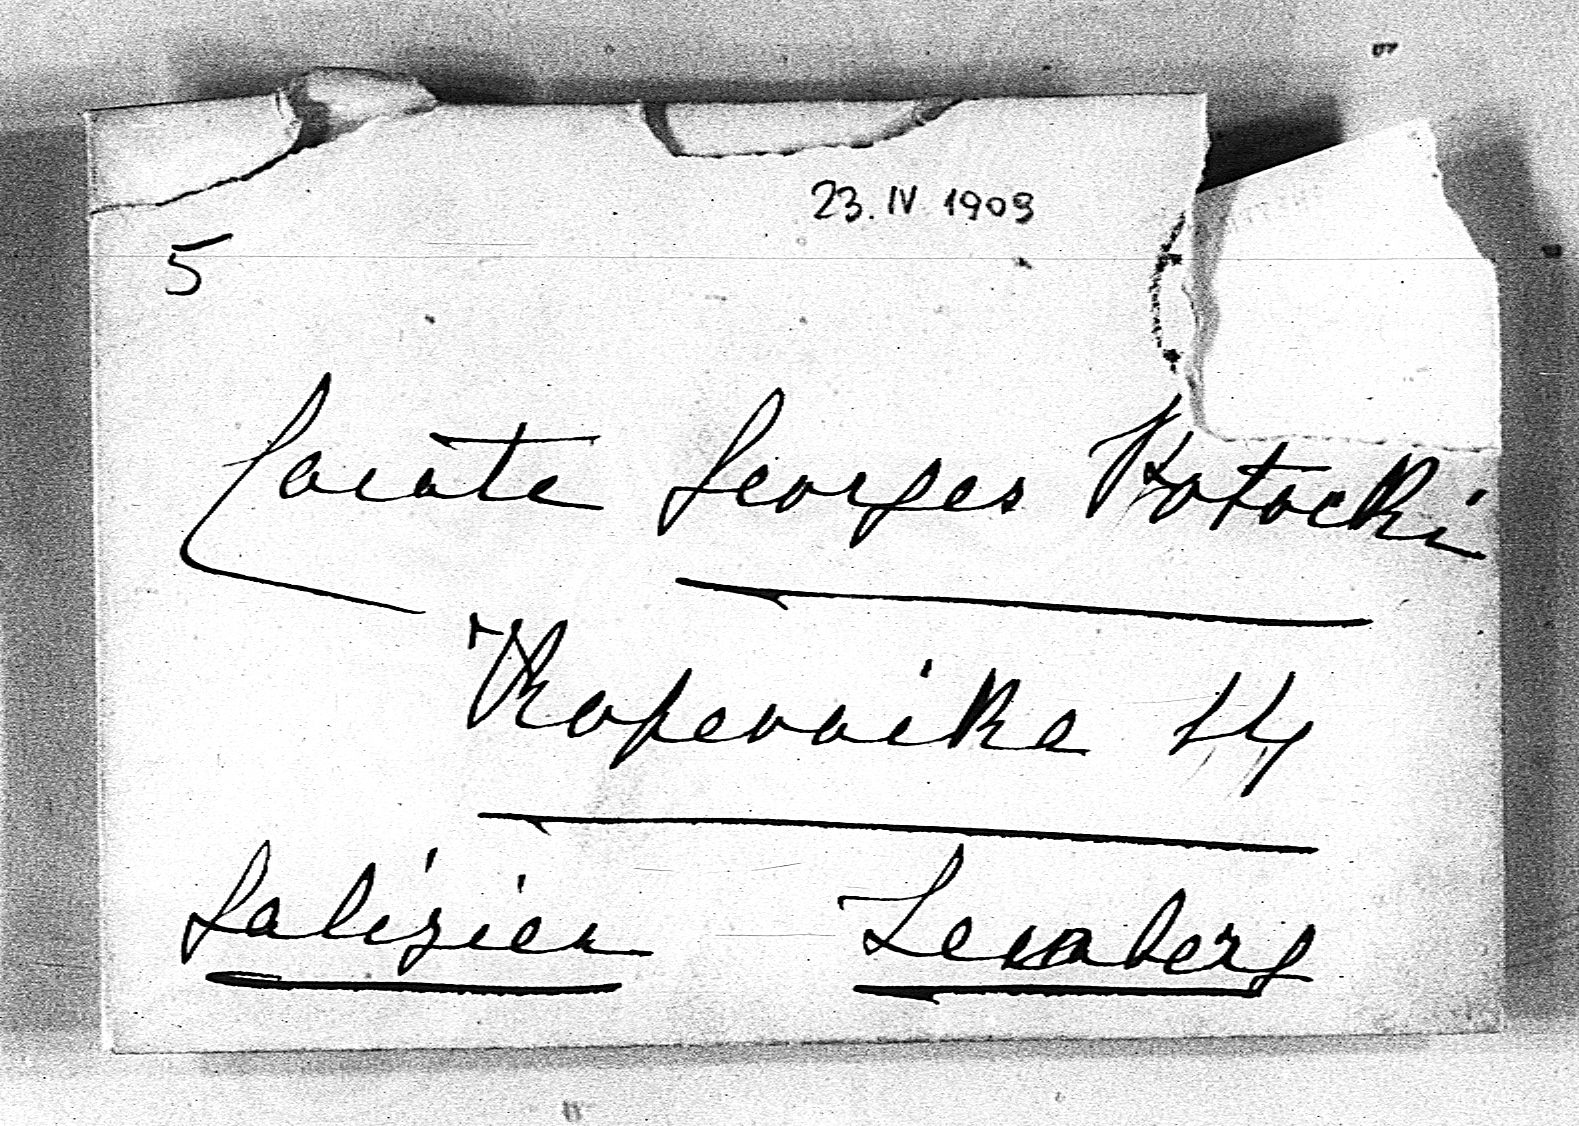 23. IV 1909
5
Comte Georges Potocki
Kopernika 14
Galizien Lemberg